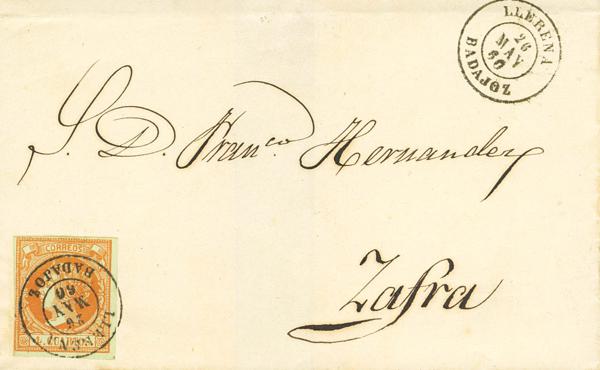 LLERENA
26
MAY
60
BADAJOZ
S. D. Franco. Hernandez
Zafra
CORREOS
BADAJOZ
60
MAY
26